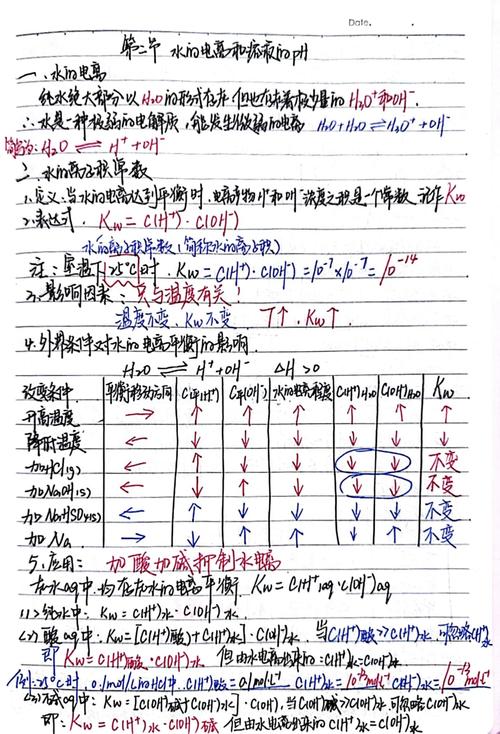 Date.
第二节 水的电离和溶液的pH
一、水的电离
纯水绝大部分以H₂O的形式存在,但也存在着极少量的H₃O⁺和OH⁻
∴水是一种极弱的电解质,能发生微弱的电离 H₂O+H₂O⇌H₃O⁺+OH⁻
简写为:H₂O⇌H⁺+OH⁻
二、水的离子积常数
1.定义:当水的电离达到平衡时,电离产物H⁺和OH⁻浓度之积是一个常数,记作Kw
2.表达式. Kw=C(H⁺)·C(OH⁻)
水的离子积常数(简称水的离子积)
注:室温下(25℃)时,Kw=C(H⁺)·C(OH⁻)=10⁻⁷×10⁻⁷=10⁻¹⁴
3.影响因素:只与温度有关!
温度不变,Kw不变 T↑,Kw↑.
4.外界条件对水的电离平衡的影响.
H₂O⇌H⁺+OH⁻ ΔH>0
改变条件 平衡移动方向 C平(H⁺) C平(OH⁻) 水的电离程度 C(H⁺)H₂O C(OH⁻)H₂O Kw
升高温度 → ↑ ↑ ↑ ↑ ↑ ↑
降低温度 ← ↓ ↓ ↓ ↓ ↓ ↓
加HCl(g) ← ↑ ↓ ↓ ↓ ↓ 不变
加NaOH(s) ← ↓ ↑ ↓ ↓ ↓ 不变
加NaHSO₄(s) ← ↑ ↓ ↓ ↓ ↓ 不变
加Na
5.应用: 加酸加碱抑制水电离
在水aq中,均存在水的电离平衡. Kw=C(H⁺)aq·C(OH⁻)aq
(1)纯水中:Kw=C(H⁺)水·C(OH⁻)水
(2)酸aq中:Kw=[C(H⁺)酸+C(H⁺)水]·C(OH⁻)水. 当C(H⁺)酸>>C(H⁺)水,可忽略C(H⁺)水
即 Kw=C(H⁺)酸·C(OH⁻)水 但由水电离出来的:C(H⁺)水=C(OH⁻)水
例:25℃时,0.1mol/L的HCl中,C(H⁺)酸=0.1mol·L⁻¹ C(H⁺)水=10⁻¹³mol·L⁻¹ C(OH⁻)水=10⁻¹³mol·L⁻¹
(3)碱aq中:Kw=[C(OH⁻)碱+C(OH⁻)水]·C(H⁺)水,当C(OH⁻)碱>>C(OH⁻)水,可忽略C(OH⁻)水
即:Kw=C(H⁺)水·C(OH⁻)碱 但由水电离出来的C(H⁺)水=C(OH⁻)水